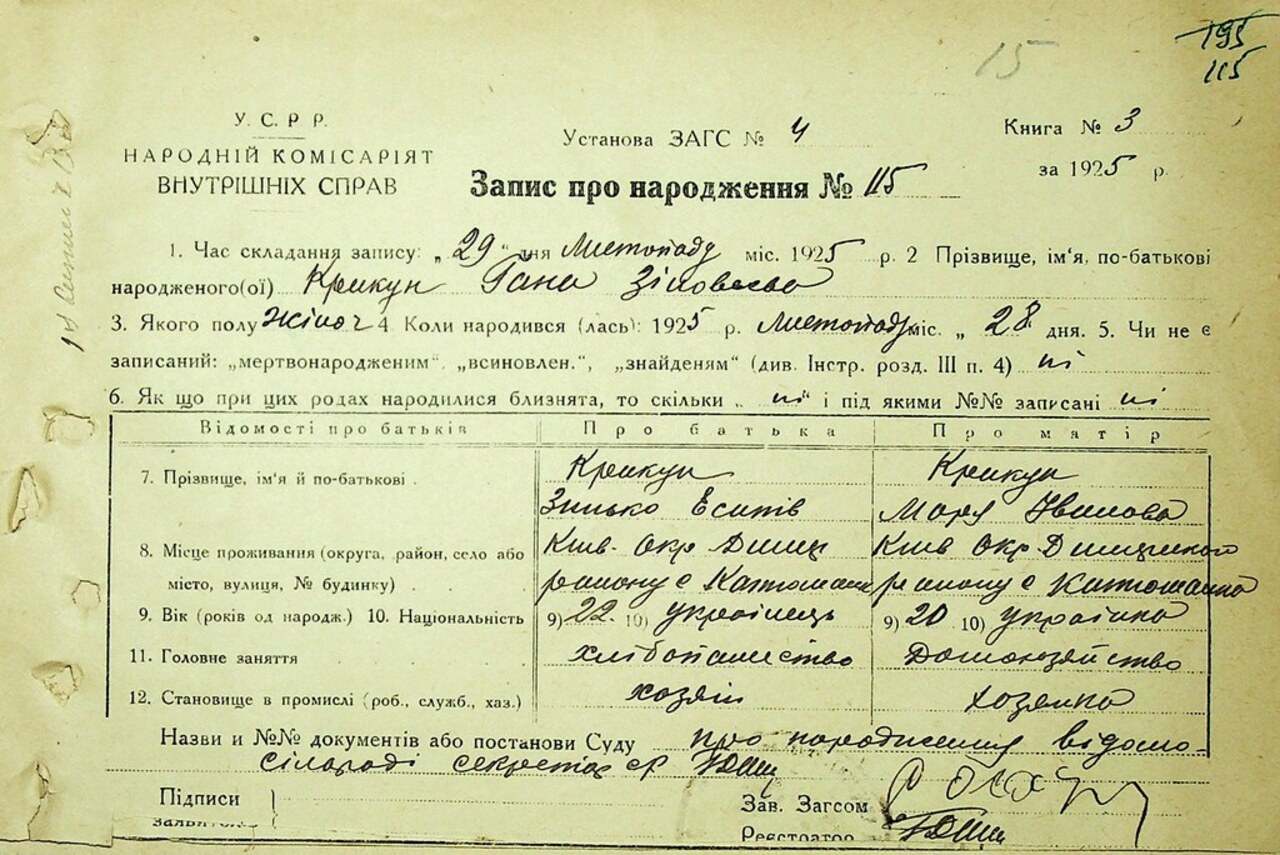 195
115
15
У. С. Р Р.
НАРОДНІЙ КОМІСАРІЯТ
ВНУТРІШНІХ СПРАВ
Установа ЗАГС № 4
Книга № 3
за 1925 р.
Запис про народження № 115
1. Час складання запису: „ 29 " дня Листопаду міс. 1925 р. 2 Прізвище, ім'я, по-батькові
народженого(ої) Крикун Гана Зіновєєва
3. Якого полу Жіноч 4. Коли народився (лась): 1925 р. Листопаду міс. „ 28 дня. 5. Чи не є
записаний: „мертвонародженим", „всиновлен.", „знайденям" (див. Інстр. розд. III п. 4) ні
6. Як що при цих родах народилися близнята, то скільки „ ні " і під якими №№ записані ні
Відомості про батьків Про батька Про матір
7. Прізвище, ім'я й по-батькові . Крикун Крикун
Зинько Есипів Марія Іванова
8. Місце проживання (округа, район, село або Київ. Окр Димир Київ Окр Димирського
місто, вулиця, № будинку) . . району с Катюжанк району с Катюжанка
9. Вік (років од народж.) 10. Національність 9) 22. 10) українець 9) 20 10) українка
11. Головне заняття хлібопашество Домохозяйство
12. Становище в промислі (роб., служб., хаз.) хозяїн хозяйка
Назви и №№ документів або постанови Суду про народження відомо
сільраді секретар
Підписи
Зав. Загсом
Реєстратор